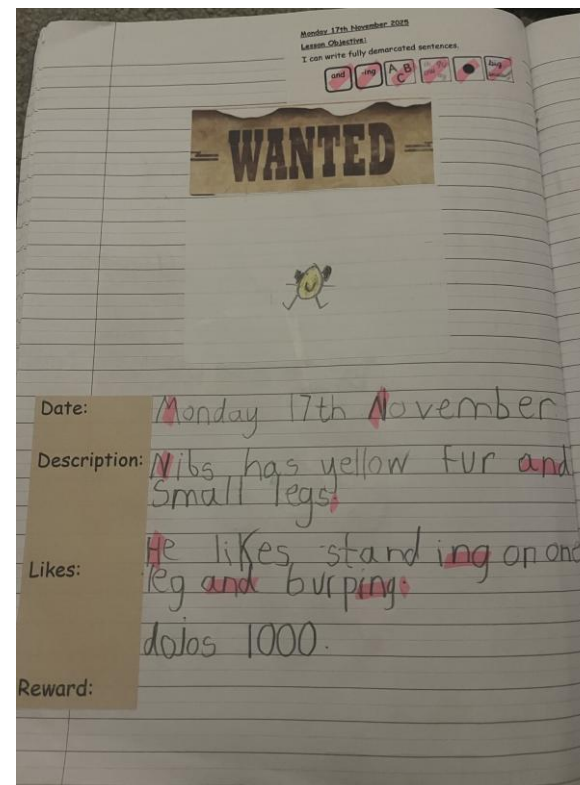 Monday 17th November 2025
Lesson Objective:
I can write fully demarcated sentences.
and -ing A B C bug
WANTED
Date: Monday 17th November
Description: Nibs has yellow fur and
small legs.
Likes: He likes standing on one
leg and burping.
Reward: dolos 1000.